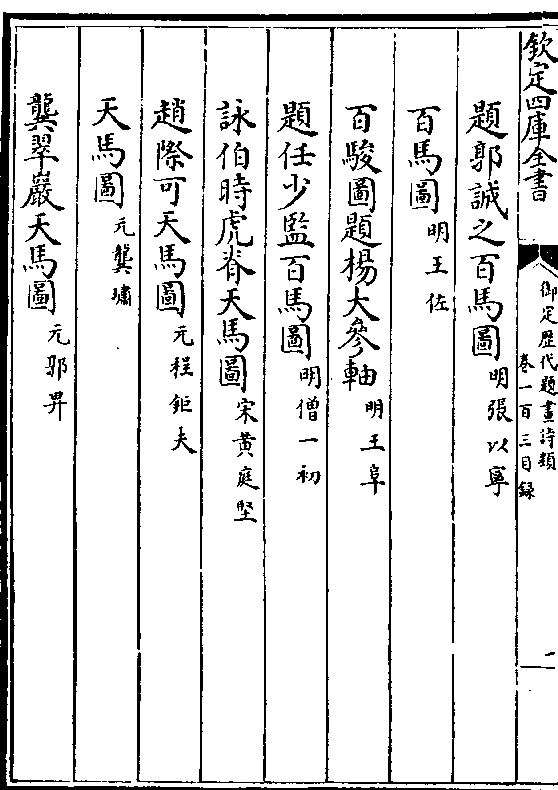 欽定四庫全書
御定歷代題畫詩類
卷一百三目録
一
題郭誠之百馬圖 明張以寧
百馬圖 明王佐
百駿圖題楊大參軸 明王阜
題任少監百馬圖 明僧一初
詠伯時虎脊天馬圖 宋黄庭堅
趙際可天馬圖 元程鉅夫
天馬圖 元龔璛
龔翠巖天馬圖 元郭昇